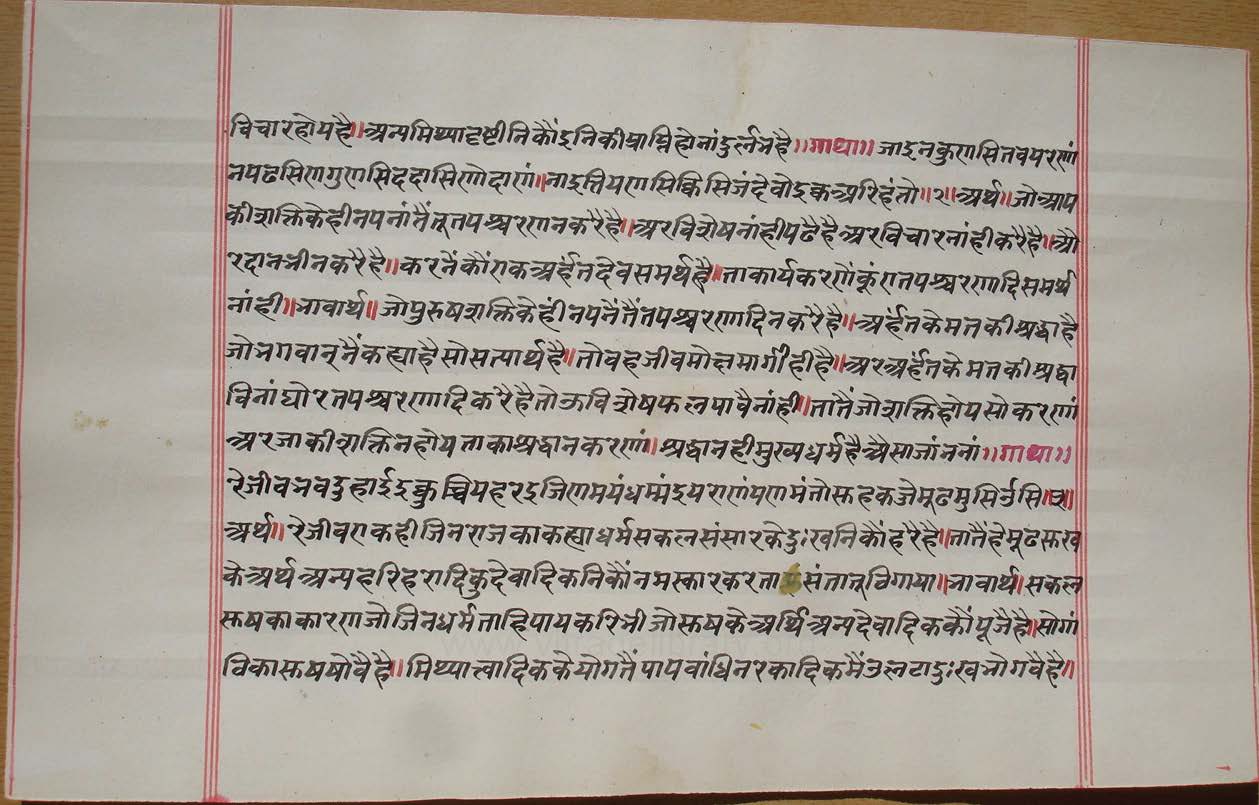 विचारहोयहै॥अन्यमिथ्यादृष्टीनिकौंइनिकीप्राप्तिहोनांदुर्लभहै॥गाथा॥जाइनकुणसितवयरणं
नपढसिणगुणसिददासिणोदाणं॥ताइत्तियणसिक्किसिजंदेवोइक्कअरिहंतो॥२॥अर्थ॥जोआप
कीशक्तिकेहीनपनांतैंतूतपश्चरणनकरैहै॥अरविशेषनांहीपढैहैअरविचारनांहीकरैहै॥औ
रदानभीनकरैहै॥करनेंकौंएकअर्हंतदेवसमर्थहै॥ताकार्यकरणेंकूंएतपश्चरणादिसमर्थ
नांही॥भावार्थ॥जोपुरुषशक्तिकेहींनपनेंतैंतपश्चरणादिनकरैहै॥अर्हंतकेमतकीश्रद्धाहै
जोभगवान्नैंकह्याहैसोसत्यार्थहै॥तोवहजीवमोक्षमार्गीहीहै॥अरअर्हंतकेमतकीश्रद्धा
विनांघोरतपश्चरणादिकरैहैतोऊविशेषफलपावैनांही॥तातैंजोशक्तिहोयसोकरणां
अरजाकीशक्तिनहोयताकाश्रद्धानकरणां॥श्रद्धानहीमुख्यधर्महैऐसाजांननां॥गाथा॥
रेजीवभवदुहाईइक्कुच्चियहरइजिणमयंधम्मंइयराणंपणमंतोसुहकजेमूढमुसिऊंसि॥३॥
अर्थ॥रेजीवएकहीजिनराजकाकह्याधर्मसकलसंसारकेदुःखनिकौंहरैहै॥तातैंहेमूढसुख
केअर्थअन्यहरिहरादिकुदेवादिकनिकौंनमस्कारकरतासंतातूठिगाया॥भावार्थ॥सकल
सुषकाकारणजोजिनधर्मताहिपायकरिभीजोसुषकेअर्थिअन्यदेवादिककौंपूजैहै॥सोगां
ठिकासुषषोवैहै॥मिथ्यात्वादिककेयोगतैंपापवांधिनरकादिकमैंउलटादुःखभोगवैहै॥